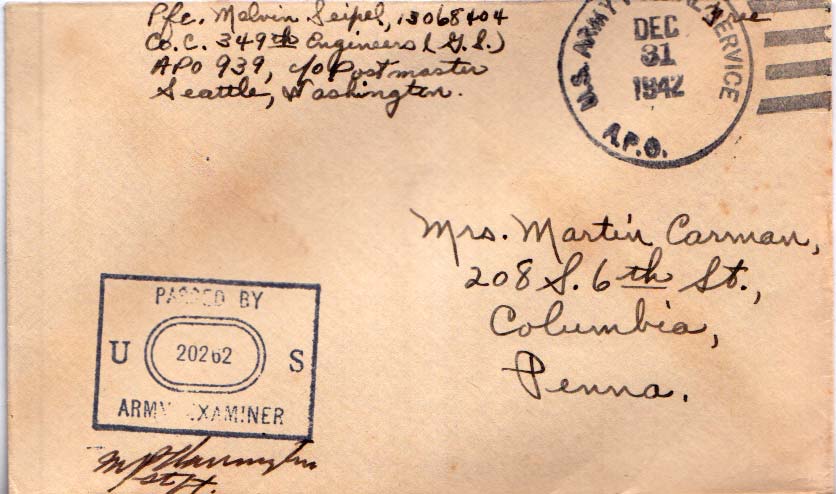 Pfc. Melvin Seipel, 13068404
Co. C. 349th Engineers (G.S.)
APO 939, c/o Postmaster
Seattle, Washington.
Free
U.S. ARMY POSTAL SERVICE
DEC
31
1942
A.P.O.
Mrs. Martin Carman,
208 S. 6th St.,
Columbia,
Penna.
PASSED BY
U 20262 S
ARMY EXAMINER